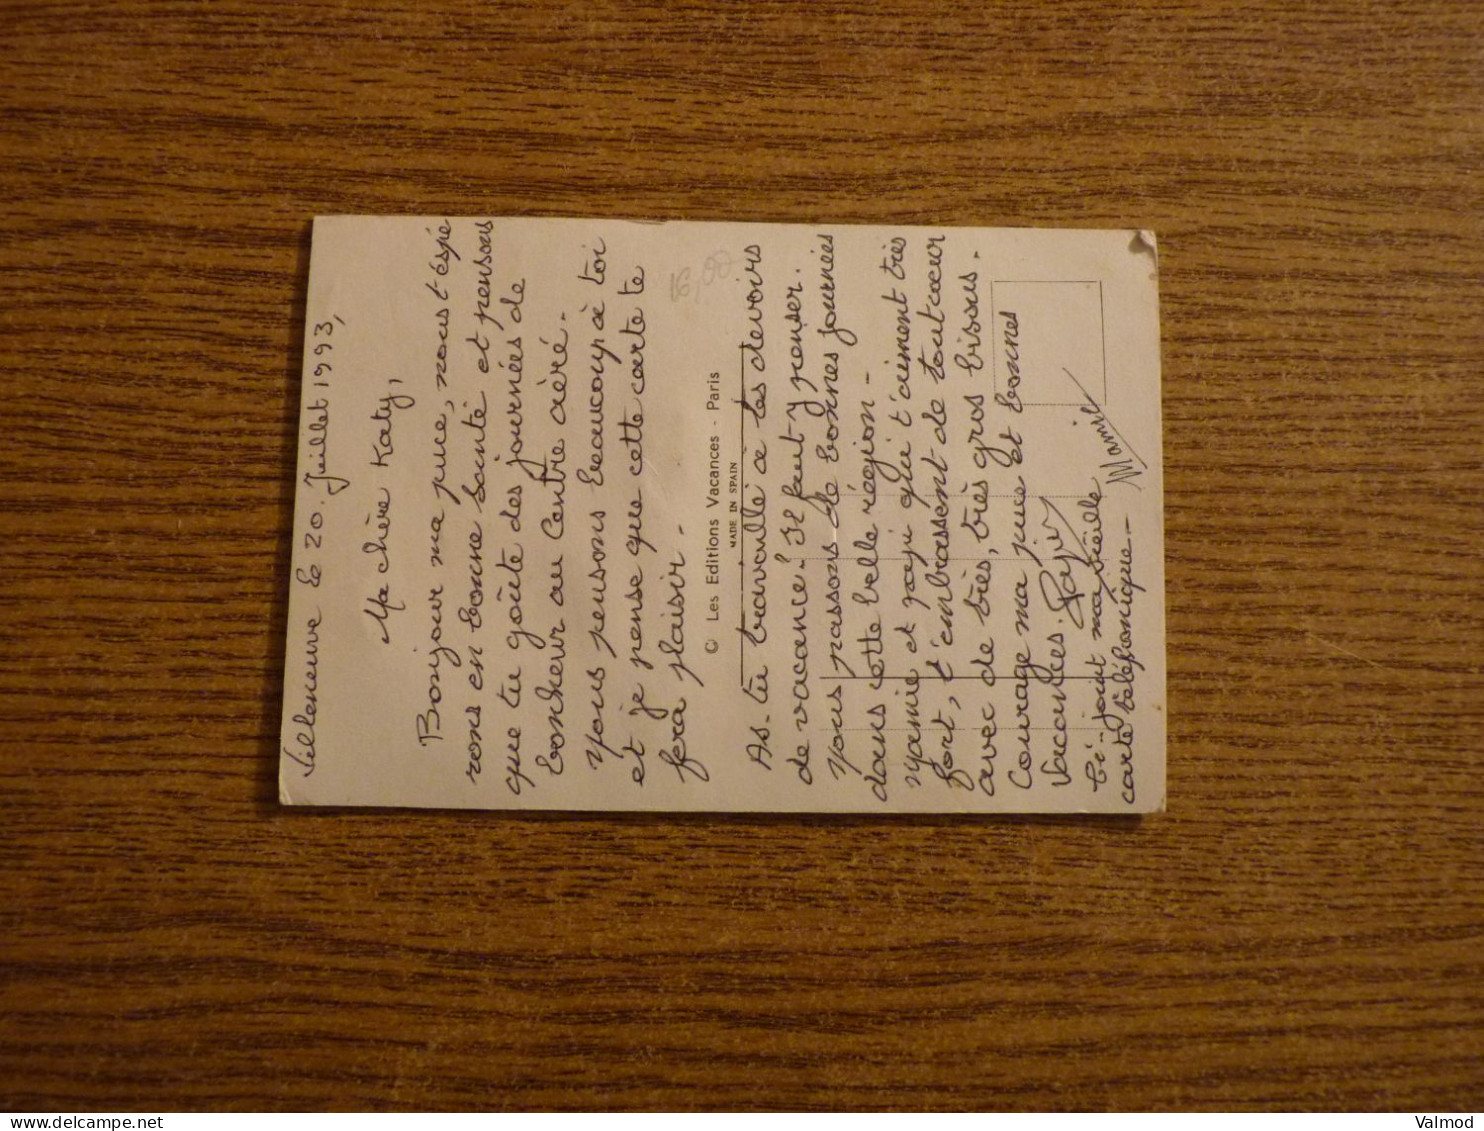 Villeneuve le 20 Juillet 1993,
Ma chère Katy,
Bonjour ma puce, nous t'espé
rons en bonne santé et pensons
que tu goûte des journées de
bonheur au Centre aéré.
Nous pensons beaucoup à toi
et je pense que cette carte te
fera plaisir.
© Les Editions Vacances - Paris
MADE IN SPAIN
As-tu travaillé à tes devoirs
de vacance! Il faut y penser.
Nous passons de bonnes journées
dans cette belle région.
Mamie et papi qui t'aiment très
fort, t'embrassent de tout cœur
avec de très, très gros bisous.
Courage ma puce et bonnes
Vacances. Papi
Ci-joint ma vieille
carte téléphonique. Mamie
delcampe.net
Valmod